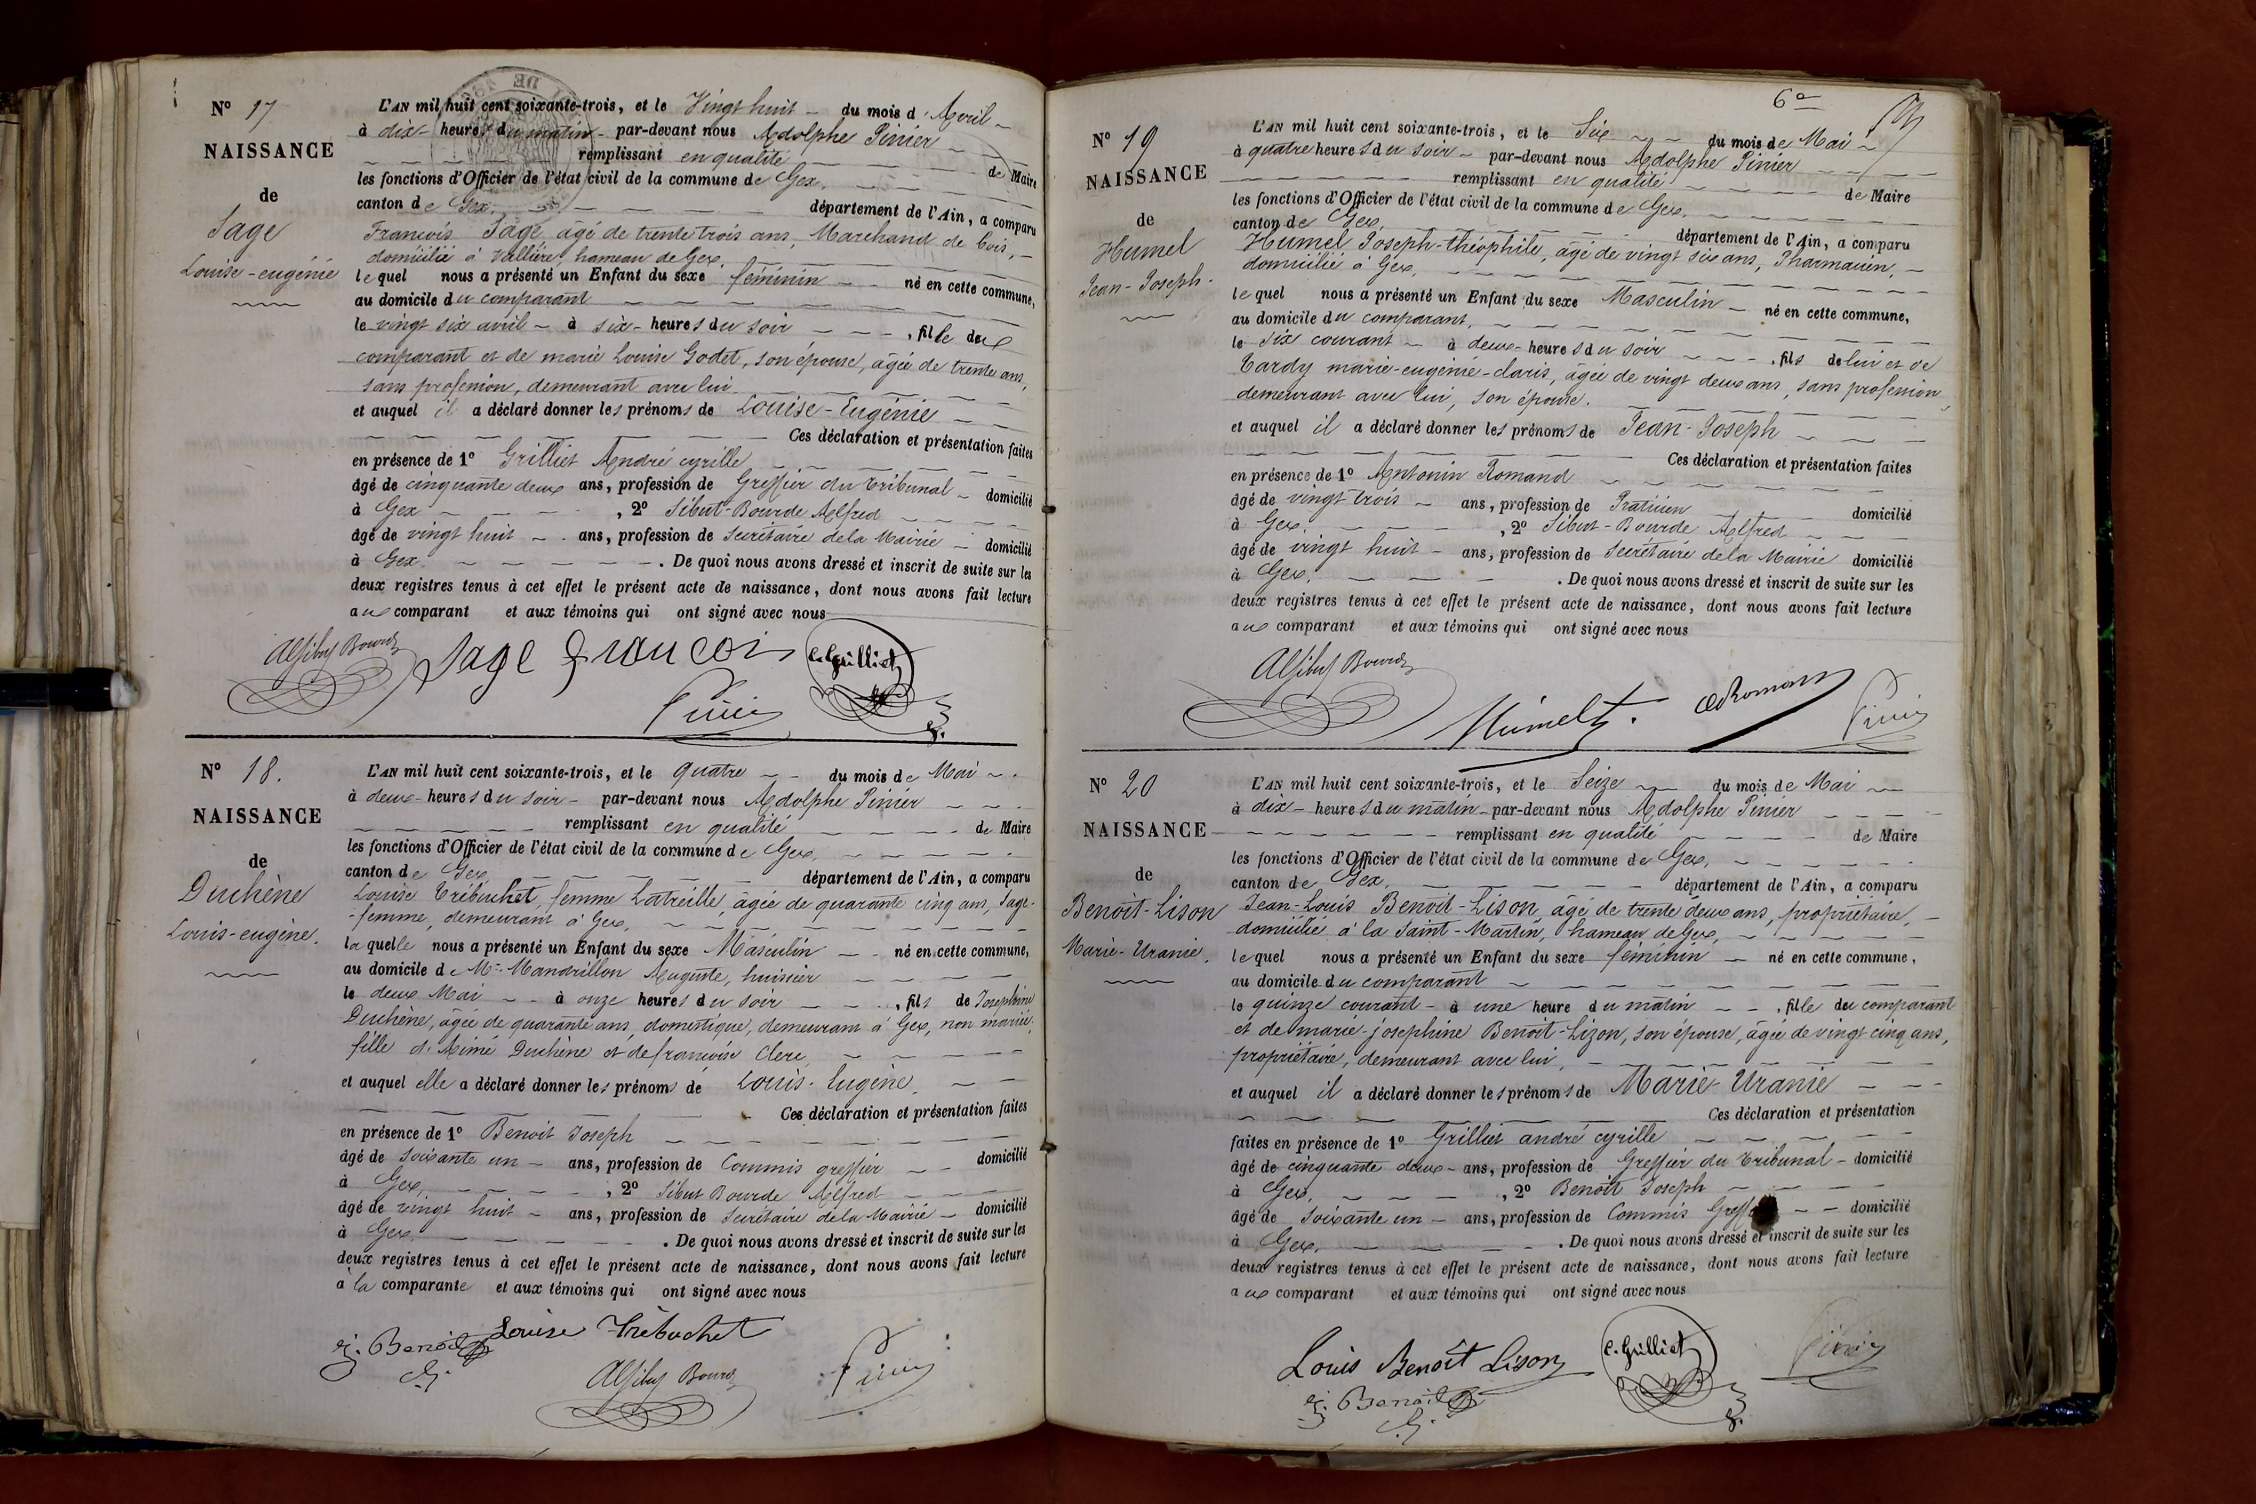 N° 17
NAISSANCE
de
Sage
Louise-eugénie
L'AN mil huit cent soixante-trois, et le Vingt huit du mois d'Avril
à dix heures du matin par-devant nous Adolphe Pinier
remplissant en qualité de Maire
les fonctions d'Officier de l'état civil de la commune de Gex.
canton de Gex. département de l'Ain, a comparu
François Sage âgé de trente trois ans, Marchand de bois,
domicilié à Vallière, hameau de Gex,
lequel nous a présenté un Enfant du sexe féminin né en cette commune,
au domicile du comparant
le vingt six avril à six heures du soir, fille du
comparant et de marie Louise Godet, son épouse, âgée de trente ans,
sans profession, demeurant avec lui
et auquel il a déclaré donner les prénoms de Louise-Eugénie
Ces déclaration et présentation faites
en présence de 1° Grilliet André cyrille
âgé de cinquante deux ans, profession de Greffier du Tribunal domicilié
à Gex , 2° Sibut-Bourde Alfred
âgé de vingt huit ans, profession de Secrétaire de la Mairie domicilié
à Gex. . De quoi nous avons dressé et inscrit de suite sur les
deux registres tenus à cet effet le présent acte de naissance, dont nous avons fait lecture
aux comparant et aux témoins qui ont signé avec nous
Sage francois C. Grilliet
Pinier
N° 18.
NAISSANCE
de
Duchène
Louis-eugène.
L'AN mil huit cent soixante-trois, et le quatre du mois de Mai
à deux heures du soir par-devant nous Adolphe Pinier
remplissant en qualité de Maire
les fonctions d'Officier de l'état civil de la commune de Gex.
canton de Gex département de l'Ain, a comparu
Louise Trébuchet, femme Latreille, âgée de quarante cinq ans, Sage-
-femme, demeurant à Gex,
laquelle nous a présenté un Enfant du sexe Masculin né en cette commune,
au domicile de Mr. Mandrillon Auguste, huissier
le deux Mai à onze heures du soir , fils de Josephine
Duchène, âgée de quarante ans, domestique, demeurant à Gex, non mariée,
fille d'Aimé Duchène et de françoise Clerc,
et auquel elle a déclaré donner les prénoms de Louis-Eugène.
Ces déclaration et présentation faites
en présence de 1° Benoit Joseph
âgé de soixante un ans, profession de Commis greffier domicilié
à Gex, , 2° Sibut Bourde Alfred
âgé de vingt huit ans, profession de Secrétaire de la Mairie domicilié
à Gex. . De quoi nous avons dressé et inscrit de suite sur les
deux registres tenus à cet effet le présent acte de naissance, dont nous avons fait lecture
à la comparante et aux témoins qui ont signé avec nous
J. Benoit Louise Trébuchet
Pinier
6e
N° 19
NAISSANCE
de
Humel
Jean-Joseph.
L'AN mil huit cent soixante-trois, et le Six du mois de Mai
à quatre heures du soir par-devant nous Adolphe Pinier
remplissant en qualité de Maire
les fonctions d'Officier de l'état civil de la commune de Gex.
canton de Gex, département de l'Ain, a comparu
Humel Joseph-théophile, âgé de vingt six ans, Pharmacien,
domicilié à Gex,
lequel nous a présenté un Enfant du sexe Masculin né en cette commune,
au domicile du comparant,
le six courant à deux heures du soir , fils de lui et de
Tardy marie-eugénie-claris, âgée de vingt deux ans, sans profession,
demeurant avec lui, son épouse.
et auquel il a déclaré donner les prénoms de Jean-Joseph
Ces déclaration et présentation faites
en présence de 1° Antonin Romand
âgé de vingt-trois ans, profession de Praticien domicilié
à Gex. , 2° Sibut-Bourde Alfred
âgé de vingt huit ans, profession de Secrétaire de la Mairie domicilié
à Gex. . De quoi nous avons dressé et inscrit de suite sur les
deux registres tenus à cet effet le présent acte de naissance, dont nous avons fait lecture
aux comparant et aux témoins qui ont signé avec nous
Humel Romand Pinier
N° 20
NAISSANCE
de
Benoît-Lison
Marie-Uranie.
L'AN mil huit cent soixante-trois, et le Seize du mois de Mai
à dix heures du matin par-devant nous Adolphe Pinier
remplissant en qualité de Maire
les fonctions d'Officier de l'état civil de la commune de Gex,
canton de Gex, département de l'Ain, a comparu
Jean-Louis Benoit-Lison, âgé de trente deux ans, propriétaire,
domicilié à la Saint-Martin, hameau de Gex,
lequel nous a présenté un Enfant du sexe féminin né en cette commune,
au domicile du comparant
le quinze courant à une heure du matin , fille du comparant
et de marie-josephine Benoit-Lizon, son épouse, âgée de vingt cinq ans,
propriétaire, demeurant avec lui,
et auquel il a déclaré donner les prénoms de Marie-Uranie
Ces déclaration et présentation
faites en présence de 1° Grilliet andré cyrille
âgé de cinquante deux ans, profession de Greffier du Tribunal domicilié
à Gex. , 2° Benoît Joseph
âgé de soixante un ans, profession de Commis domicilié
à Gex, . De quoi nous avons dressé et inscrit de suite sur les
deux registres tenus à cet effet le présent acte de naissance, dont nous avons fait lecture
aux comparant et aux témoins qui ont signé avec nous
Louis Benoît Lison C. Grilliet Pinier
J. Benoit